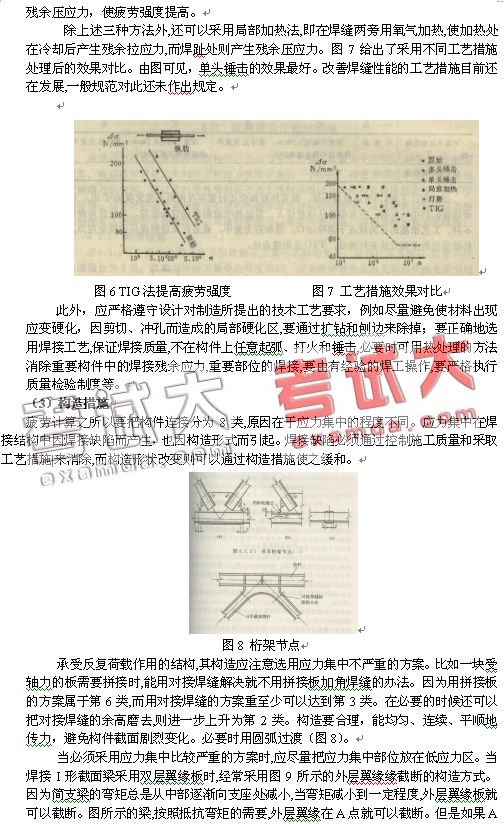 残余压应力，使疲劳强度提高。
除上述三种方法外,还可以采用局部加热法,即在焊缝两旁用氧气加热,使加热处
在冷却后产生残余拉应力,而焊趾处则产生残余压应力。图 7 给出了采用不同工艺措施
处理后的效果对比。由图可见,单头捶击的效果最好。改善焊缝性能的工艺措施目前还
在发展,一般规范对此还未作出规定。
Δσ
N/mm²
纵肋
200
100
80
TIG
原始
10⁵ 5.10⁵ 10⁶ 5.10⁶ n
Δσ
N/mm²
200
150
100
80
60
40
10⁴ 10⁵ 10⁶ 10⁷ n
原始
多头锤击
单头锤击
局部加热
打磨
TIG
图 6 TIG 法提高疲劳强度
图 7 工艺措施效果对比
此外，应严格遵守设计对制造所提出的技术工艺要求，例如尽量避免使材料出现
应变硬化，因剪切、冲孔而造成的局部硬化区,要通过扩钻和刨边来除掉；要正确地选
用焊接工艺,保证焊接质量,不在构件上任意起弧、打火和锤击,必要时可用热处理的方法
消除重要构件中的焊接残余应力,重要部位的焊接,要由有经验的焊工操作,要严格执行
质量检验制度等。
（3）构造措施
疲劳计算之所以要把构件连接分为 8 类,原因在于应力集中的程度不同。应力集中在焊
接结构中因焊接缺陷而产生,也因构造形式而引起。焊接缺陷必须通过控制施工质量和采取
工艺措施来消除,而构造形状改变则可以通过构造措施使之缓和。
考试大
examda.com
考试大
examda.com
(a) (b) (c)
图 8 桁架节点
承受反复荷载作用的结构,其构造应注意选用应力集中不严重的方案。比如一块受
轴力的板需要拼接时,能用对接焊缝解决就不用拼接板加角焊缝的办法。因为用拼接板
的方案属于第 6 类,而用对接焊缝的方案重至少可以达到第 3 类。在必要的时候还可以
把对接焊缝的余高磨去,则进一步上升为第 2 类。构造要合理，能均匀、连续、平顺地
传力，避免构件截面剧烈变化。必要时用圆弧过渡（图 8）。
当必须采用应力集中比较严重的方案时,应尽量把应力集中部位放在低应力区。当
焊接 I 形截面梁采用双层翼缘板时,经常采用图 9 所示的外层翼缘缘截断的构造方式。
因为简支梁的弯矩总是从中部逐渐向支座处减小,当弯矩减小到一定程度,外层翼缘板就
可以截断。图所示的梁,按照抵抗弯矩的需要,外层翼缘在 A 点就可以截断。但是如果 A